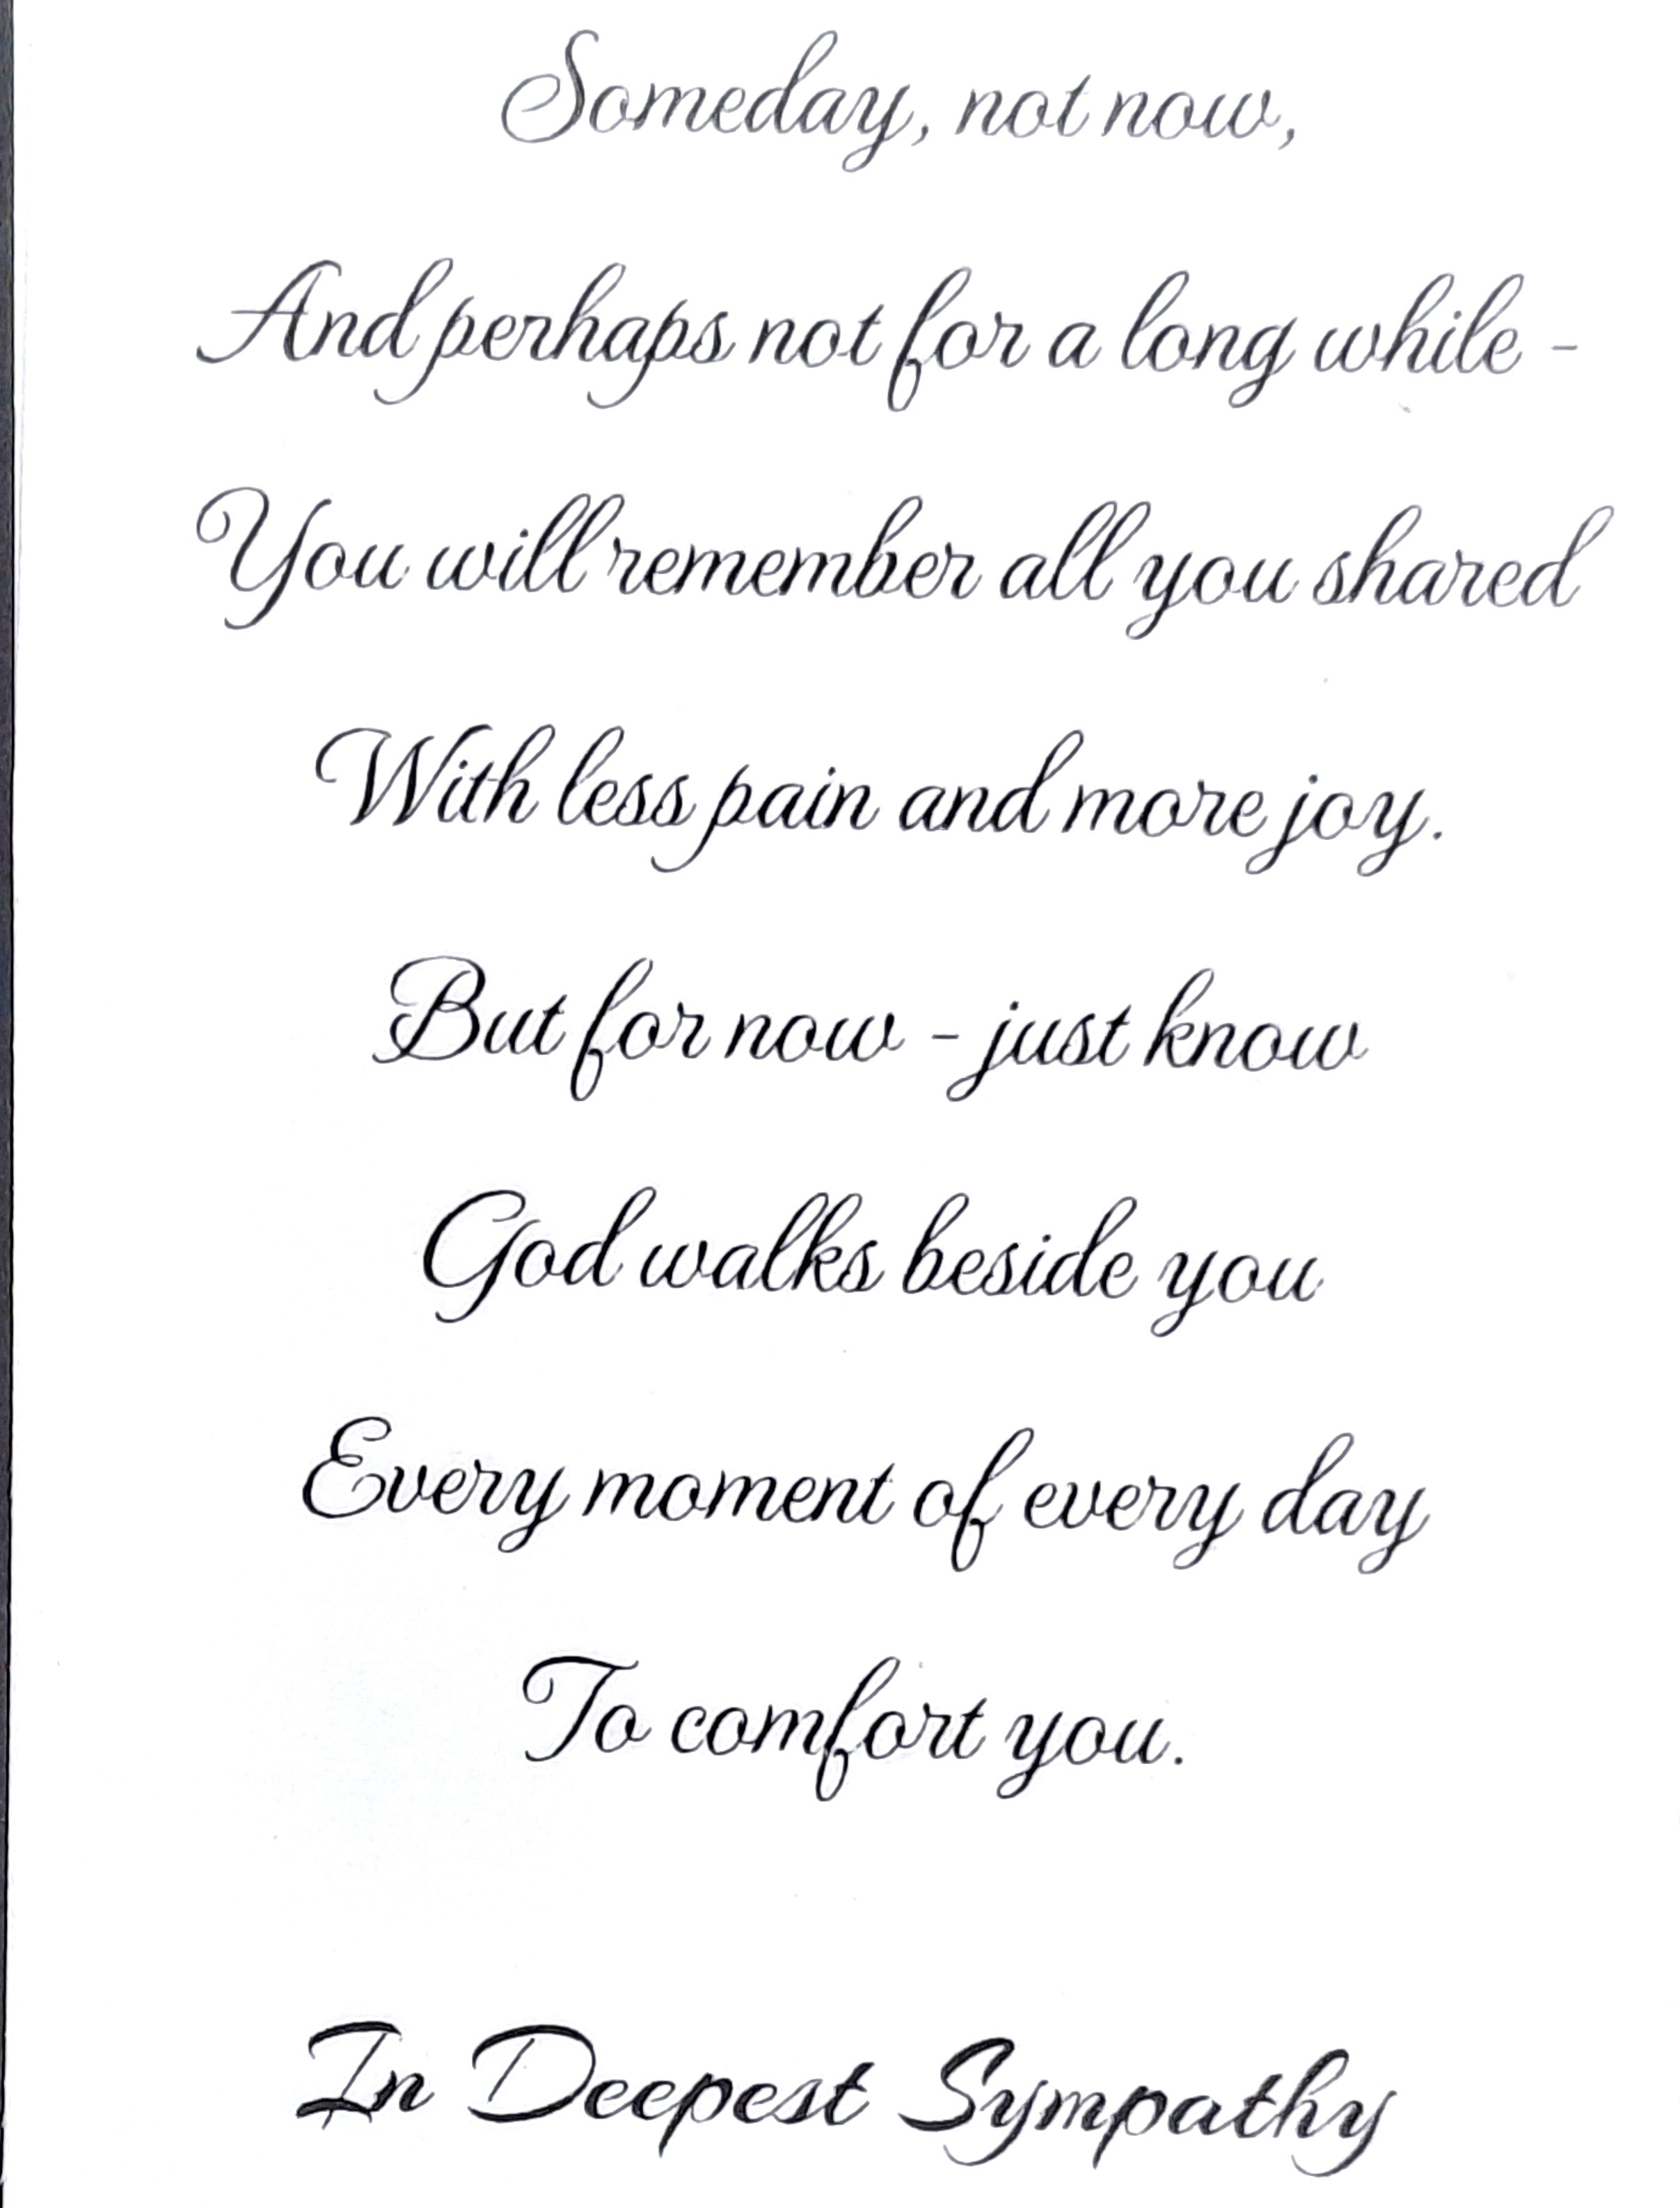 Someday, not now,
And perhaps not for a long while -
You will remember all you shared
With less pain and more joy.
But for now - just know
God walks beside you
Every moment of every day
To comfort you.
In Deepest Sympathy